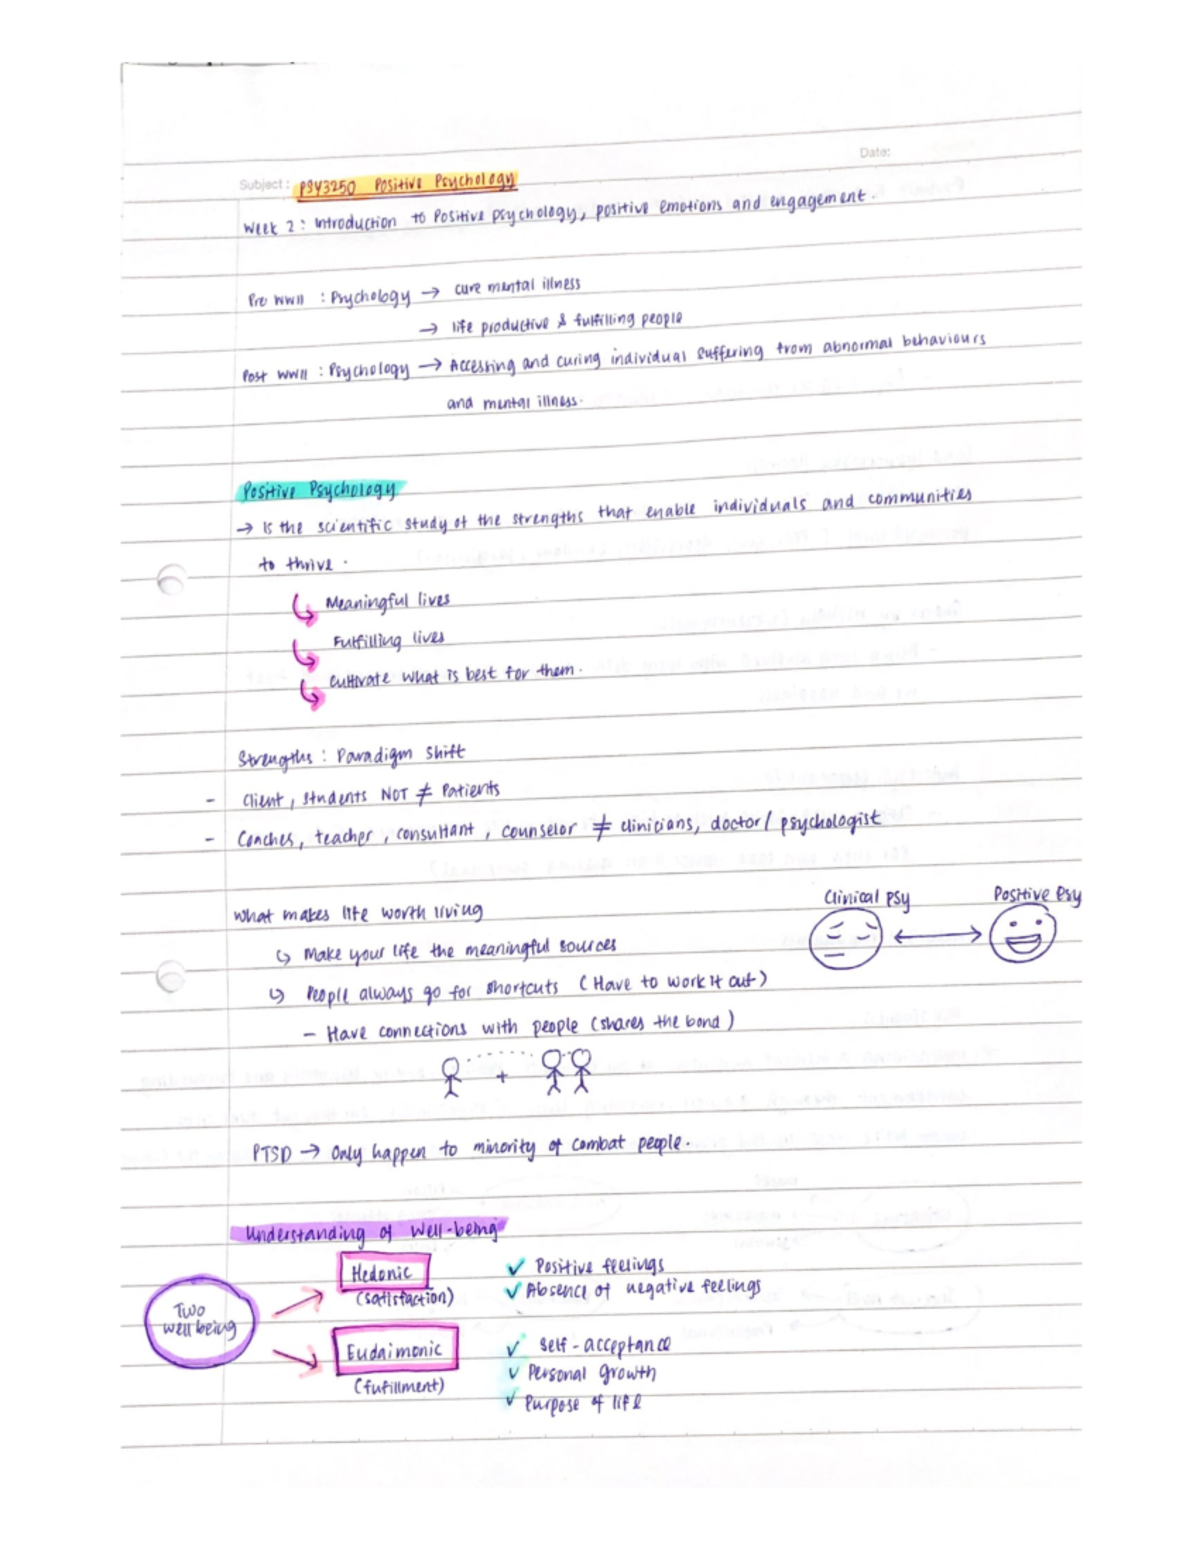 Date:
Subject: PSY3250 Positive Psychology
Week 2: Introduction to Positive psychology, positive emotions and engagement.
Pre WWII : Psychology → cure mental illness
→ life productive & fulfilling people
Post WWII : Psychology → Accessing and curing individual suffering from abnormal behaviours
and mental illness.
Positive Psychology
→ Is the scientific study of the strengths that enable individuals and communities
to thrive.
Meaningful lives
Fulfilling lives
cultivate what is best for them.
Strengths : Paradigm shift
- Client, students NOT ≠ Patients
- Coaches, teacher, consultant, counselor ≠ clinicians, doctor/ psychologist
Clinical PSy ↔ Positive Psy
What makes life worth living
↳ Make your life the meaningful sources
↳ People always go for shortcuts (Have to work it out)
- Have connections with people (shares the bond)
+
PTSD → Only happen to minority of combat people.
Understanding of Well-being
Two well being
Hedonic
(satisfaction)
✓ Positive feelings
✓ Absence of negative feelings
Eudaimonic
(fufillment)
✓ Self-acceptance
✓ Personal growth
✓ Purpose of life